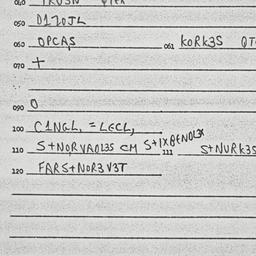 050 D1ZOJL
060 OPCAS 061 KORK3S OT
070 +
090 O
100 C1NGL, = LECL,
110 S+NORVAOL3S CM S+IXBENOL3X 111 S+NURK3S
120 FARS+NOR3V3T